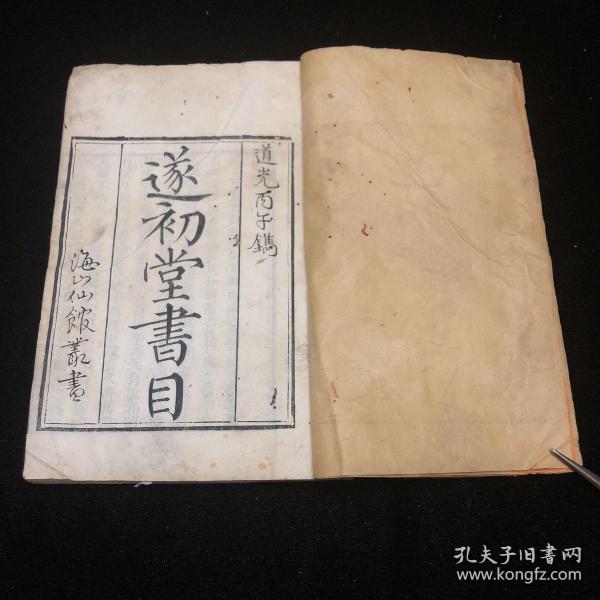 道光丙午鐫
遂初堂書目
海山仙館叢書
孔夫子旧书网
www.kongfz.com